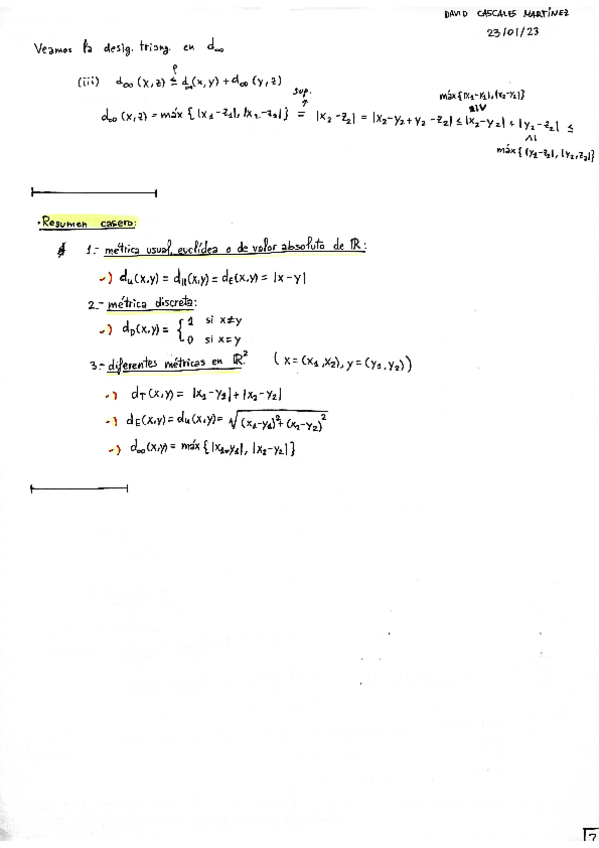 DAVID CASCALES MARTÍNEZ
23/01/23
Veamos la desig. triang. en d∞
(iii) d∞(x,z) ≤ d∞(x,y) + d∞(y,z)
sup.
máx{|x₁-y₁|,|x₂-y₂|}
d∞(x,z) = máx{|x₁-z₁|, |x₂-z₂|} = |x₂-z₂| = |x₂-y₂+y₂-z₂| ≤ |x₂-y₂| + |y₂-z₂| ≤
máx{|y₁-z₁|, |y₂,z₂|}
·Resumen casero:
1.- métrica usual, euclídea o de valor absoluto de ℝ:
→) dᵤ(x,y) = d||(x,y) = d_E(x,y) = |x-y|
2.- métrica discreta:
→) d_D(x,y) = { 1 si x≠y
0 si x=y
3.- diferentes métricas en ℝ² (x=(x₁,x₂), y=(y₁,y₂))
→) d_T(x,y) = |x₁-y₁| + |x₂-y₂|
→) d_E(x,y) = dᵤ(x,y) = √((x₁-y₁)²+(x₂-y₂)²)
→) d∞(x,y) = máx{|x₁-y₁|, |x₂-y₂|}
7